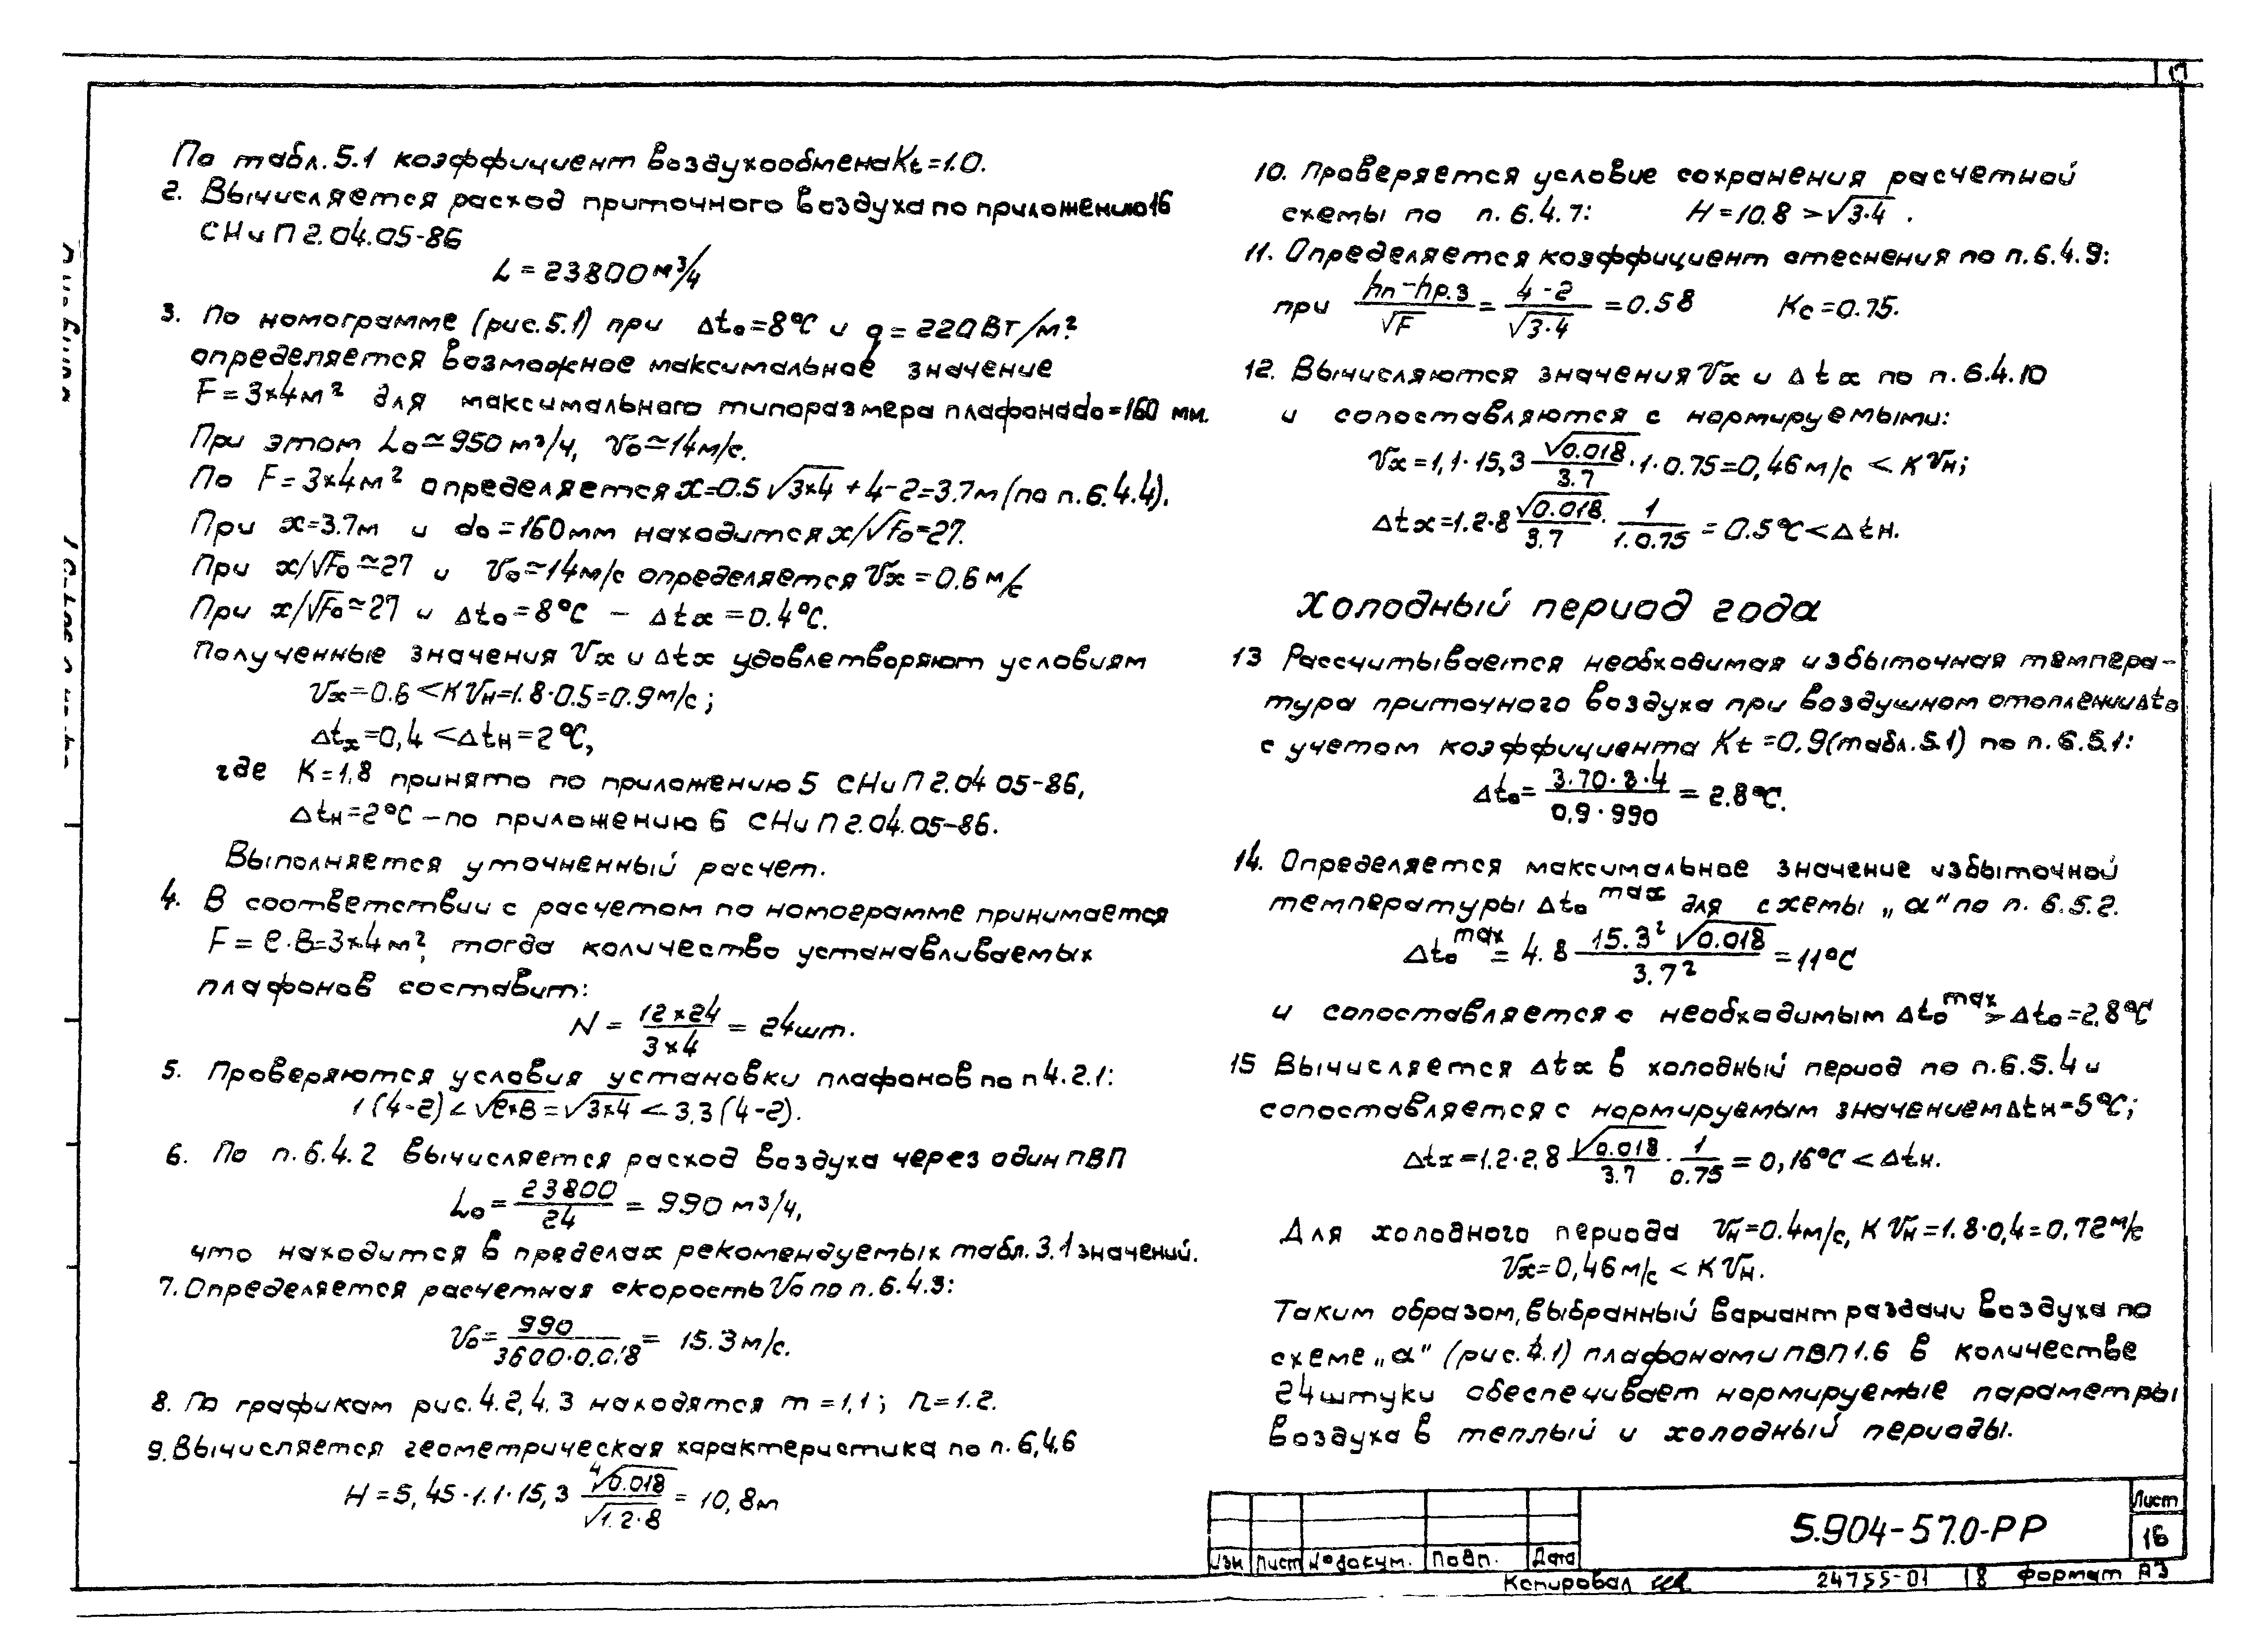 17
По табл. 5.1 коэффициент воздухообмена Kt = 1.0.
2. Вычисляется расход приточного воздуха по приложению 16
СНиП 2.04.05-86
L = 23800 м³/ч
3. По номограмме (рис. 5.1) при Δt₀ = 8°C и q = 220 Вт/м²
определяется возможное максимальное значение
F = 3×4 м² для максимального типоразмера плафона d₀ = 160 мм.
При этом L₀ ≃ 950 м³/ч, V₀ ≃ 14 м/с.
По F = 3×4 м² определяется x = 0.5 √3×4 + 4-2 = 3.7 м (по п. 6.4.4).
При x = 3.7 м и d₀ = 160 мм находится x/√F₀ = 27.
При x/√F₀ ≃ 27 и V₀ ≃ 14 м/с определяется Vx = 0.6 м/с
При x/√F₀ ≃ 27 и Δt₀ = 8°C – Δtx = 0.4°C.
Полученные значения Vx и Δtx удовлетворяют условиям
Vx = 0.6 < K Vн = 1.8·0.5 = 0.9 м/с;
Δtx = 0,4 < Δtн = 2°C,
где K = 1,8 принято по приложению 5 СНиП 2.04 05-86,
Δtн = 2°C – по приложению 6 СНиП 2.04.05-86.
Выполняется уточненный расчет.
4. В соответствии с расчетом по номограмме принимается
F = e·B = 3×4 м², тогда количество устанавливаемых
плафонов составит:
N = 12×24 / 3×4 = 24 шт.
5. Проверяются условия установки плафонов по п 4.2.1:
1(4-2) < √e×B = √3×4 < 3,3(4-2).
6. По п. 6.4.2 вычисляется расход воздуха через один ПВП
L₀ = 23800 / 24 = 990 м³/ч,
что находится в пределах рекомендуемых табл. 3.1 значений.
7. Определяется расчетная скорость V₀ по п. 6.4.3:
V₀ = 990 / 3600·0.018 = 15.3 м/с.
8. По графикам рис. 4.2, 4.3 находятся m = 1,1; n = 1.2.
9. Вычисляется геометрическая характеристика по п. 6,4,6
H = 5,45·1.1·15,3 ⁴√0.018 / √1.2·8 = 10,8 м
10. Проверяется условие сохранения расчетной
схемы по п. 6.4.7: H = 10.8 > √3·4 .
11. Определяется коэффициент стеснения по п. 6.4.9:
при hп – hр.з / √F = 4-2 / √3·4 = 0.58 Kс = 0.75.
12. Вычисляются значения Vx и Δtx по п. 6.4.10
и сопоставляются с нормируемыми:
Vx = 1,1·15,3 √0.018 / 3.7 ·1·0.75 = 0,46 м/с < K Vн;
Δtx = 1.2·8 √0.018 / 3.7 · 1 / 1.0.75 = 0.5°C < Δtн.
Холодный период года
13 Рассчитывается необходимая избыточная темпера-
тура приточного воздуха при воздушном отоплении Δt₀
с учетом коэффициента Kt = 0,9 (табл. 5.1) по п. 6.5.1:
Δt₀ = 3·70·3·4 / 0,9·990 = 2.8°C.
14. Определяется максимальное значение избыточной
температуры Δt₀ max для схемы „а" по п. 6.5.2.
Δt₀ max = 4.8 15.3² √0.018 / 3.7² = 11°C
и сопоставляется с необходимым Δt₀ max > Δt₀ = 2,8°C
15 Вычисляется Δtx в холодный период по п. 6.5.4 и
сопоставляется с нормируемым значением Δtн = 5°C;
Δtx = 1.2·2,8 √0.018 / 3.7 · 1 / 0.75 = 0,16°C < Δtн.
Для холодного периода Vн = 0.4 м/с, K Vн = 1.8·0,4 = 0,72 м/с
Vx = 0,46 м/с < K Vн.
Таким образом, выбранный вариант раздачи воздуха по
схеме „а" (рис. 4.1) плафонами ПВП 1.6 в количестве
24 штуки обеспечивает нормируемые параметры
воздуха в теплый и холодный периоды.
5.904-57.0-РР
Лист
16
Изм Лист № докум. Подп. Дата
Копировал 24755-01 18 Формат А3